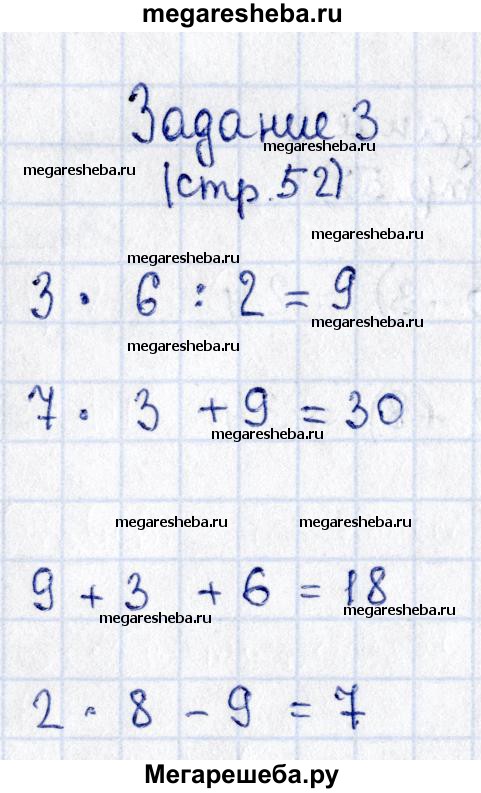 megaresheba.ru
Задание 3
megaresheba.ru
megaresheba.ru
(стр. 52)
megaresheba.ru
megaresheba.ru
3 · 6 : 2 = 9
megaresheba.ru
megaresheba.ru
7 · 3 + 9 = 30
megaresheba.ru
megaresheba.ru megaresheba.ru
9 + 3 + 6 = 18
megaresheba.ru megaresheba.ru
2 · 8 - 9 = 7
Мегарешеба.ру